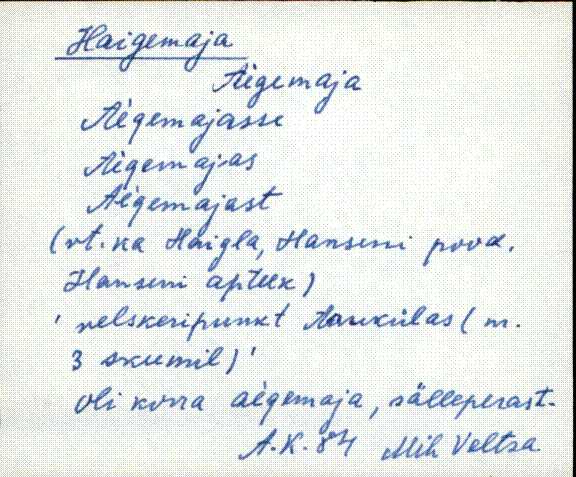 Haigemaja
Aègemaja
Aègemajasse
Aègemajas
Aègemajast
(vt. ka Haigla, Hanseni pood,
Hanseni apteek)
' velskeripunkt Aaukülas (m.
3 skeemil) '
oli korra aègemaja, sälleperast.
A.K. 84 Mih Veltsa